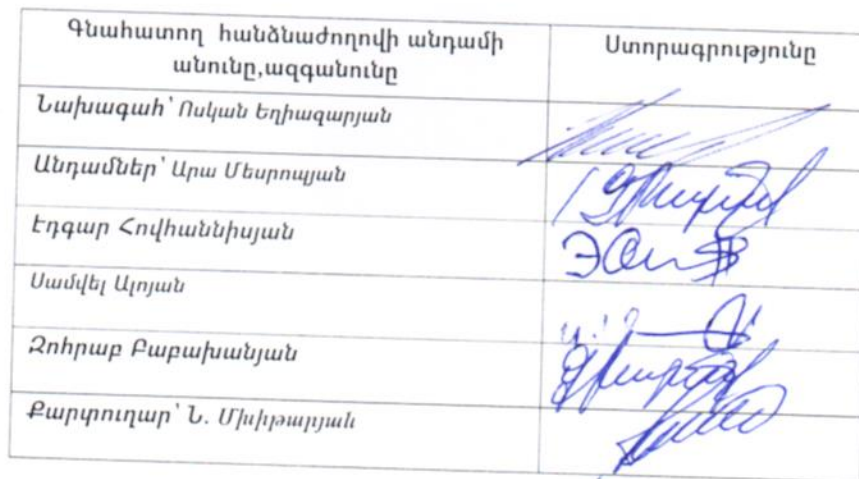 Գնահատող հանձնաժողովի անդամի Ստորագրությունը
անունը,ազգանունը
Նախագահ՝ Ոսկան Եղիազարյան
Անդամներ՝ Արա Մեսրոպյան
Էդգար Հովհաննիսյան
Սամվել Ալոյան
Զոհրաբ Բաբախանյան
Քարտուղար՝ Ն. Մխիթարյան